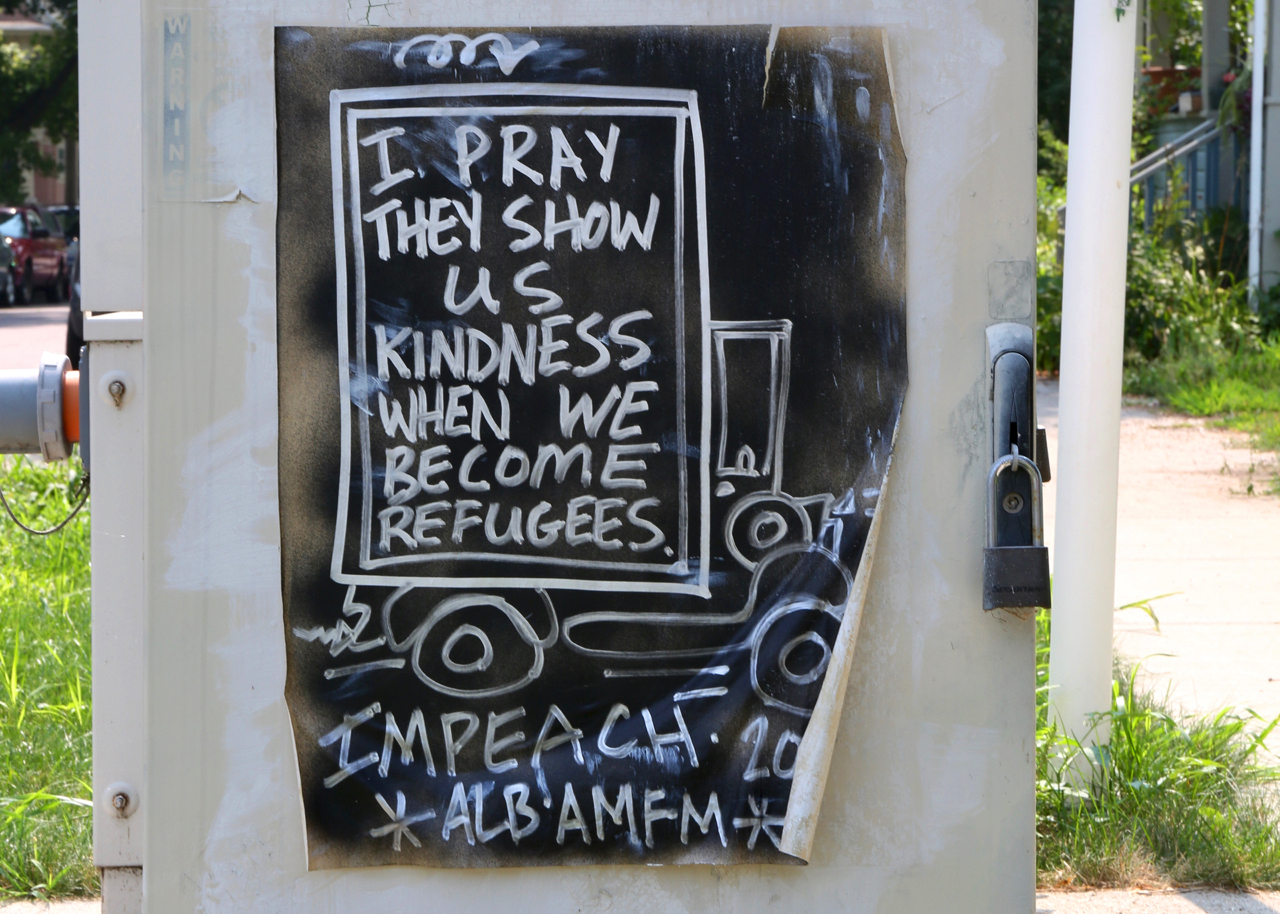 WARNING
I PRAY
THEY SHOW
US
KINDNESS
WHEN WE
BECOME
REFUGEES.
IMPEACH. 20
*ALBAMFM*